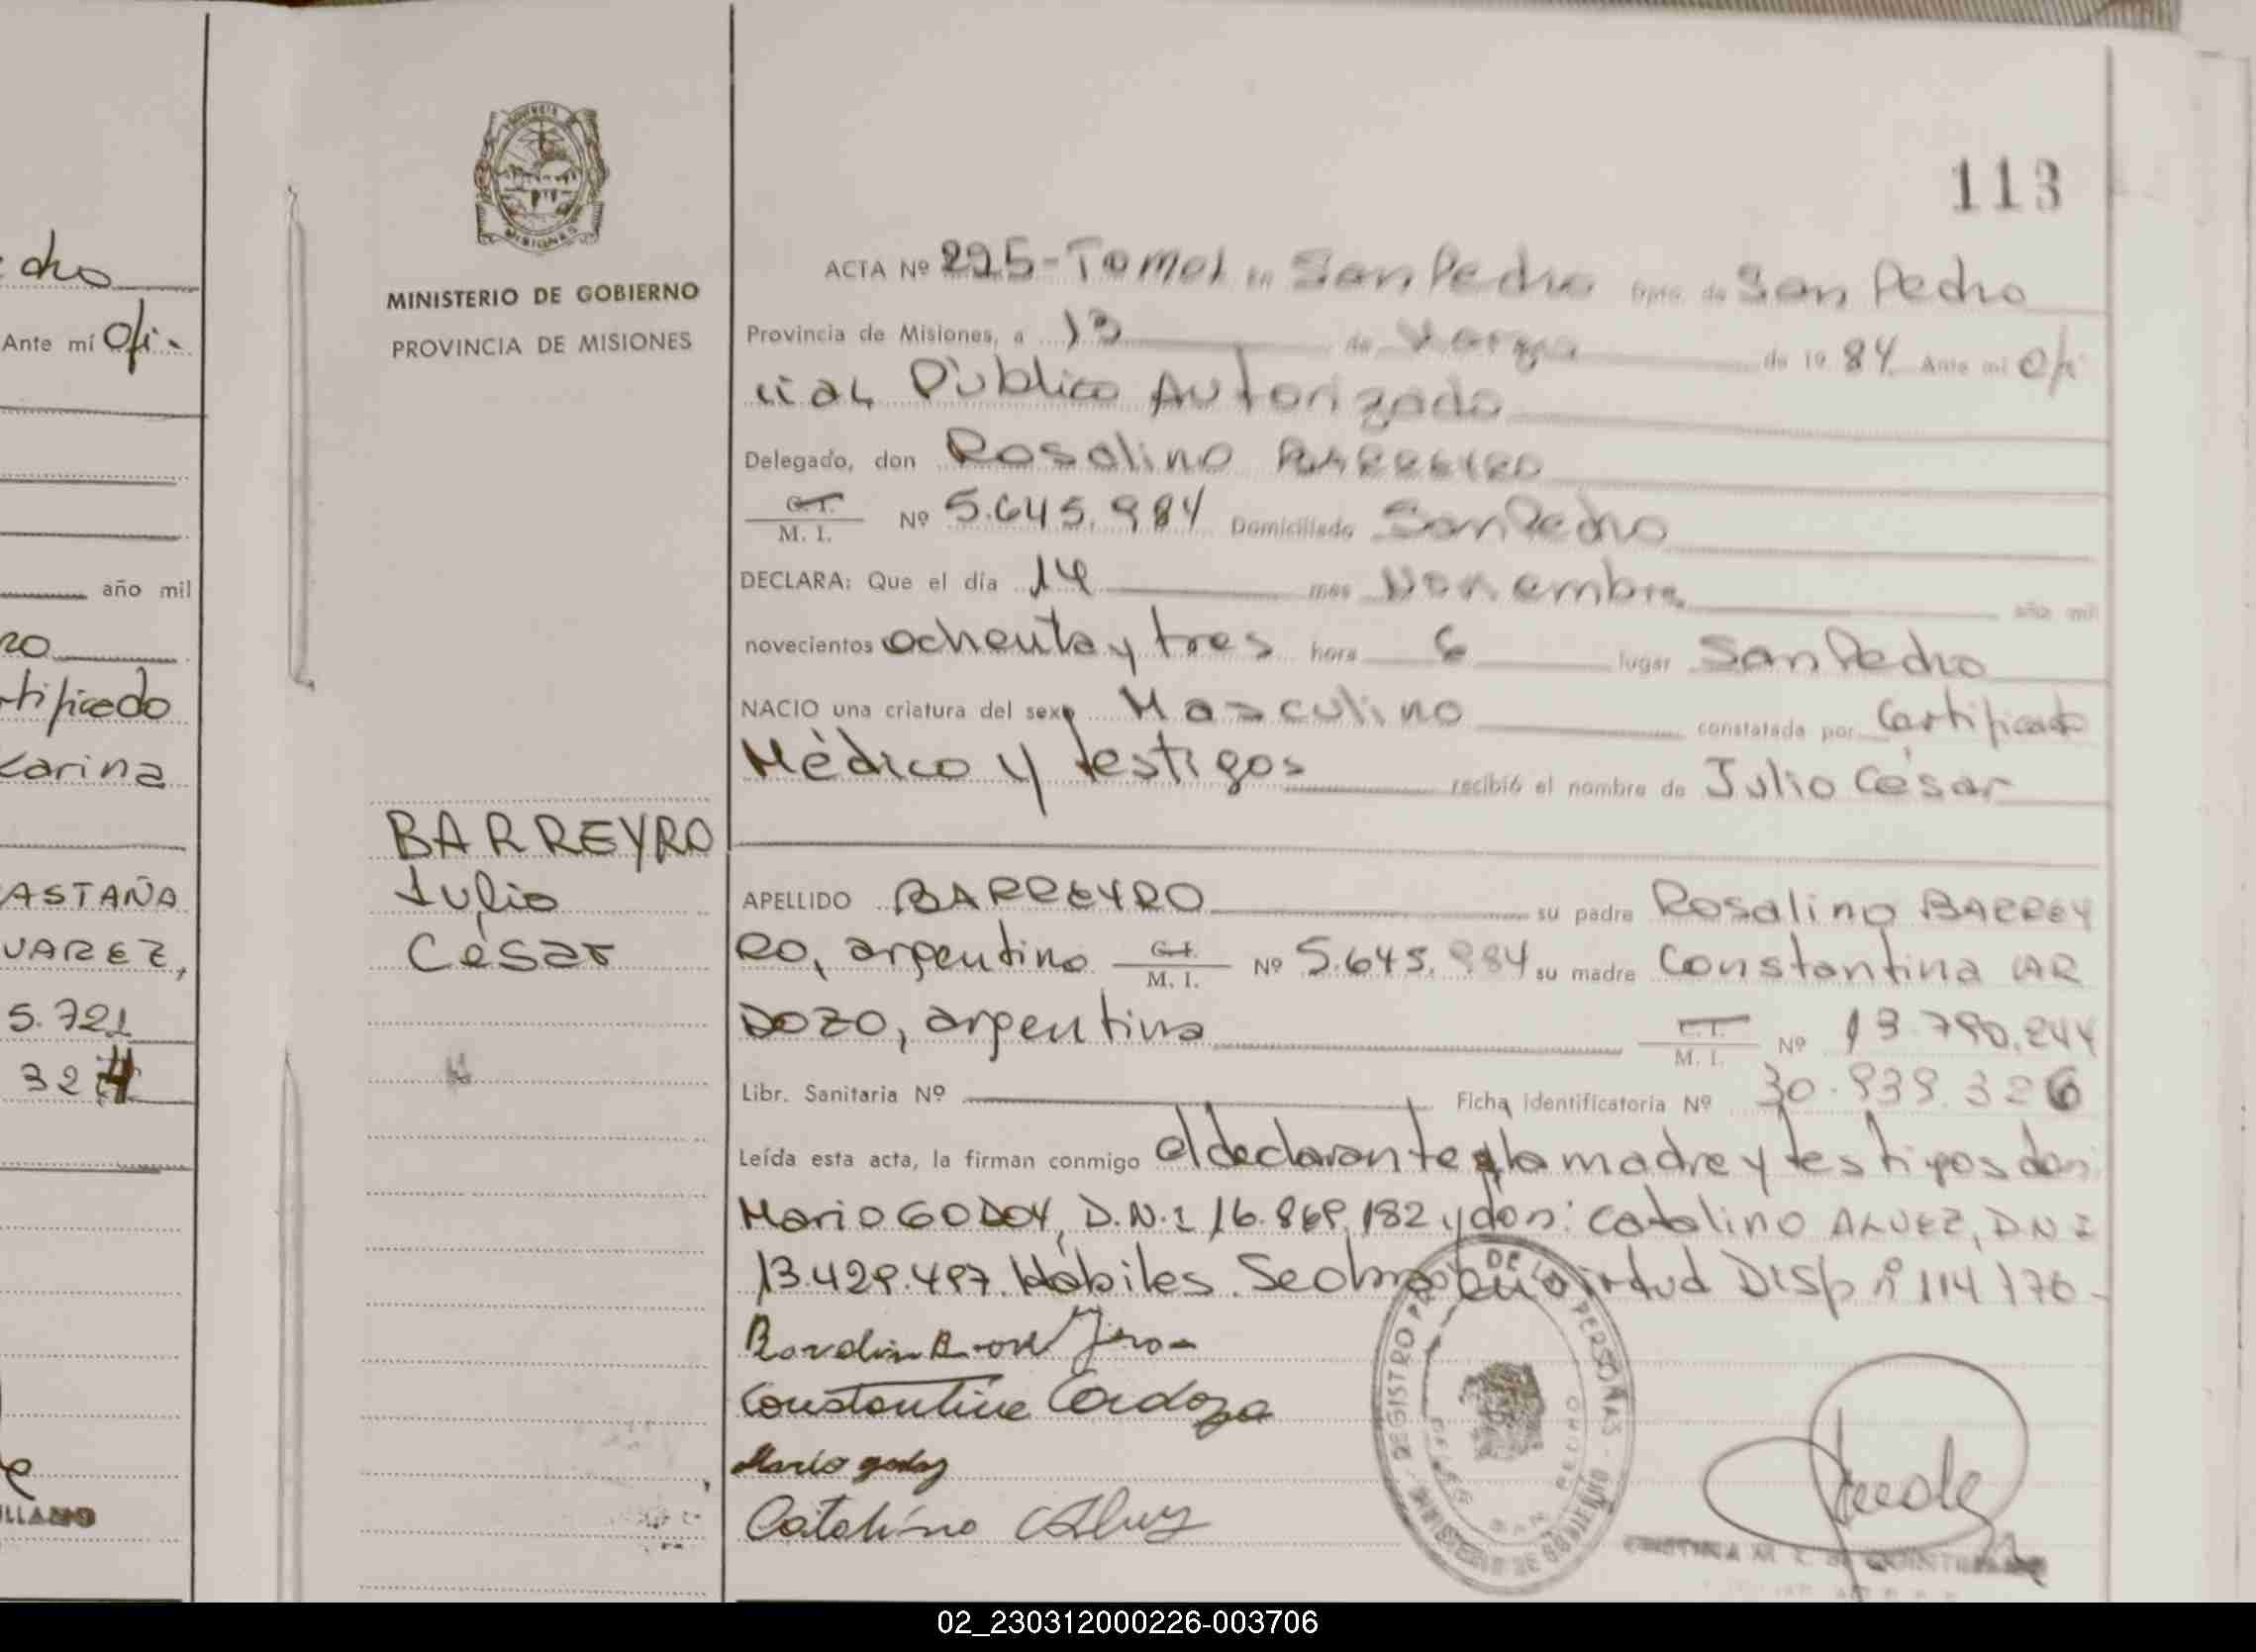 113
dro
Ante mí Ofi-
año mil
ro
rtificado
Karina
ASTAÑA
UAREZ,
5.721
324
PROVINCIA DE
MISIONES
MINISTERIO DE GOBIERNO
PROVINCIA DE MISIONES
BARREYRO
Julio
César
ACTA Nº 225-Tomo I en San Pedro Dpto. de San Pedro
Provincia de Misiones, a 13 de de 19 84 Ante mí Ofi
cial Público Autorizado
Delegado, don Rosalino BARREYRO
C.I.
M. I. Nº 5.645.984 Domiciliado San Pedro
DECLARA: Que el día 14 mes Noviembre año mil
novecientos ochenta y tres hora 6 lugar San Pedro
NACIO una criatura del sexo Masculino constatada por Certificado
Médico y testigos recibió el nombre de Julio César
APELLIDO BARREYRO su padre Rosalino BARREY
RO, argentino C.I. M. I. Nº 5.645.984 su madre Constantina CAR
DOZO, argentina C.I. M. I. Nº 13.790.244
Libr. Sanitaria Nº Ficha identificatoria Nº 30.939.326
Leída esta acta, la firman conmigo el declarante y la madre y testigos don:
Mario GODOY, D.N.I 16.869.182 y don: Catalino ALVEZ, D N I
13.429.497. Hábiles. Se obra en virtud Disp nº 114/76-
Constantine Cardozo
Mario godoy
Catalino Alvez
REGISTRO PROV. DE LAS PERSONAS
MINISTERIO DE GOBIERNO
SAN PEDRO
CRISTINA M. C. DE QUINTILLANO
ILLANO
02_230312000226-003706